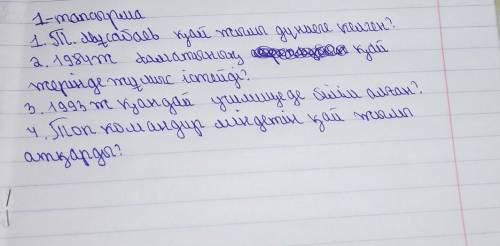 1-тапсырма
1. Т. Мұсабаев қай жылы дүниеге келген?
2. 1984ж Алматының қай
жерінде жұмыс істейді?
3. 1993ж қандай училищеде білім алған?
4. Топ командир міндетін қай жылы
атқарды?